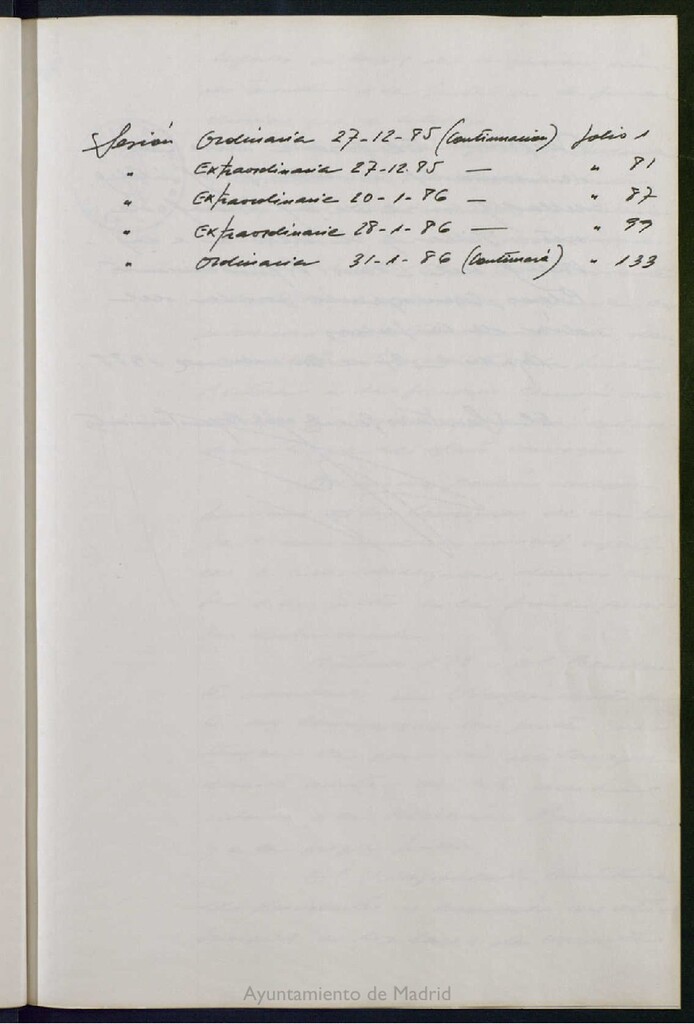 Sesión Ordinaria 27-12-85 (Continuación) folio 1
" Extraordinaria 27-12.85 — " 81
" Extraordinaria 20-1-86 — " 87
" Extraordinaria 28-1-86 — " 99
" Ordinaria 31-1-86 (Continuará) " 133
Ayuntamiento de Madrid